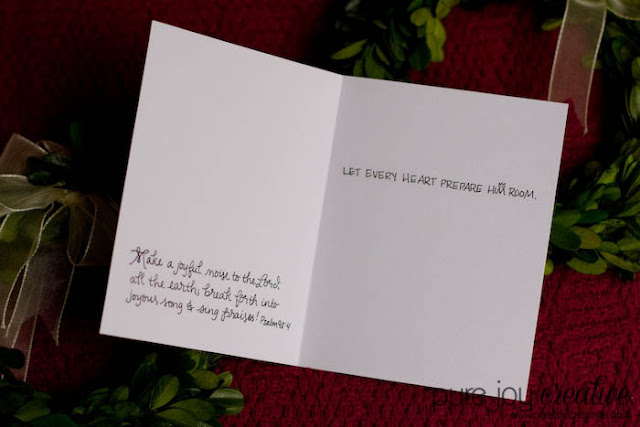 Make a joyful noise to the Lord,
all the earth; break forth into
joyous song & sing praises! Psalm 98:4
LET EVERY HEART PREPARE HIM ROOM.
pure joy creative